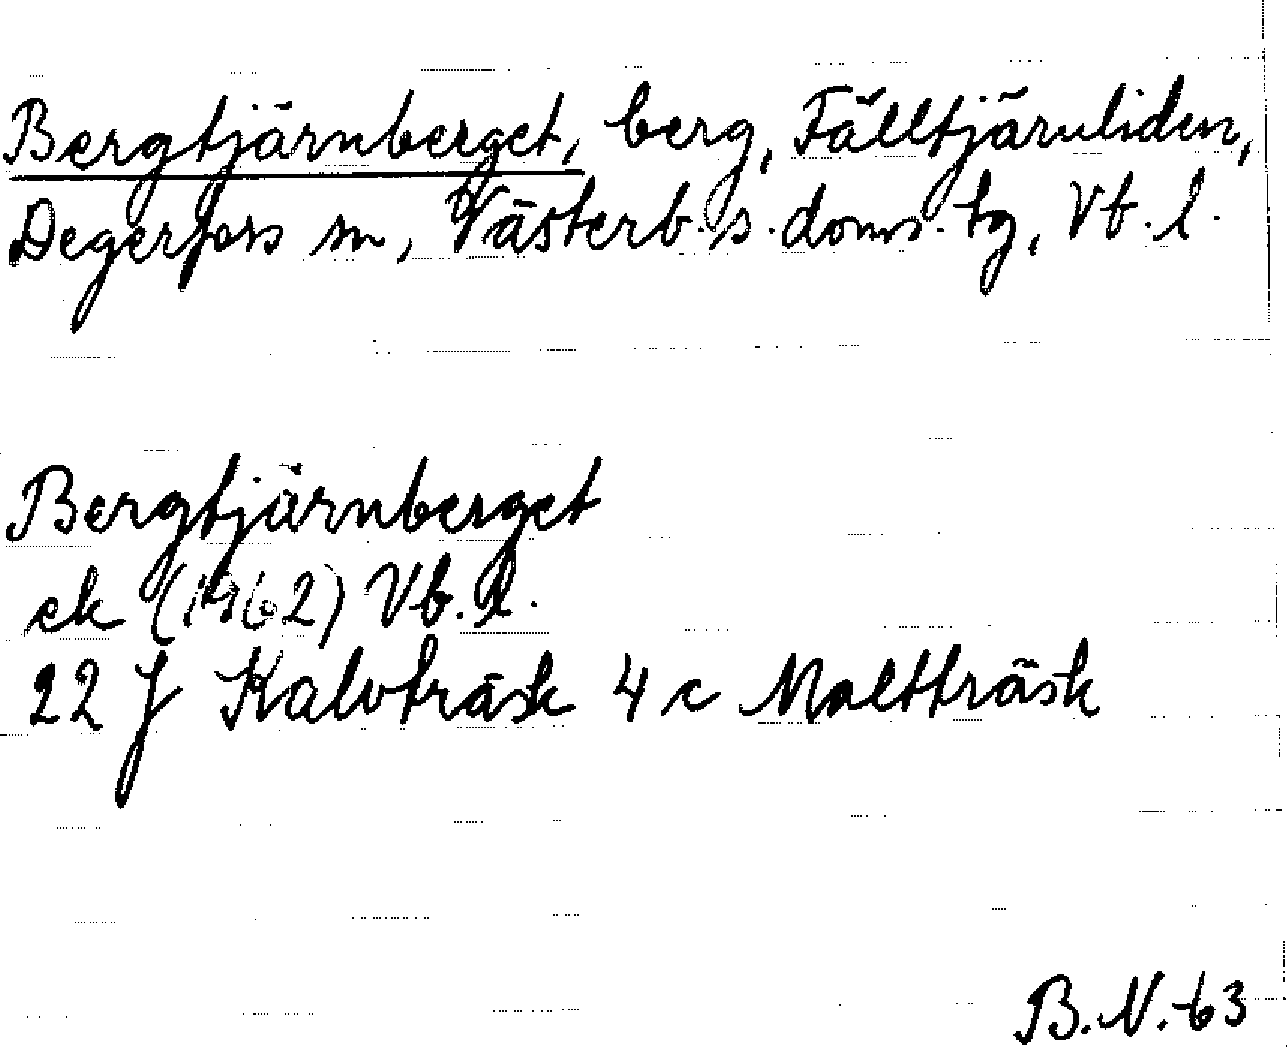 Bergtjärnberget, berg, Fälltjärnliden,
Degerfors sn, Västerb. s. doms. tg, Vb. l.
Bergtjärnberget
ek (1962) Vb. l.
22 J Kalvträsk 4 c Maltträsk
B. N. 63